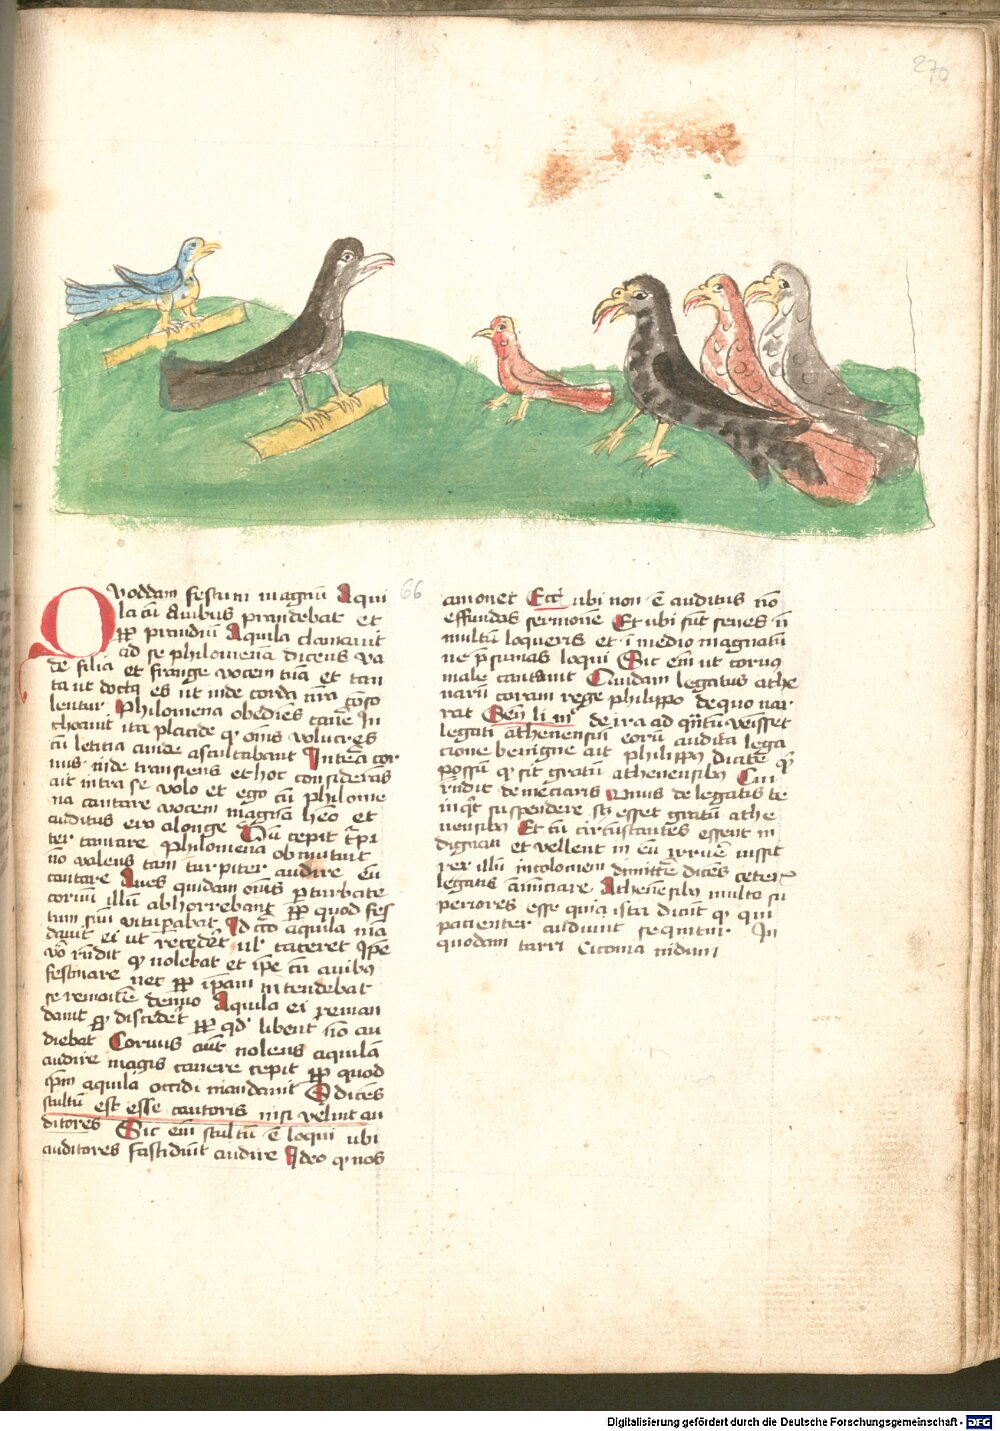 270
Quoddam festum magnū Aqui
la cū Auibus prandebat et
pꝑ prandiū Aquila clamauit
ad se philomenā dicens va
de filia et frange vocem tuā et can
ta ut docta es ut inde corda nr̄a cōso
lentur Philomena obediēs cane In
choauit ita placide qꝫ omīs volucres
cū letitia auide ascultabant Interea cor
uus inde transiens et hoc considerās
ait intra se volo et ego cū philome
na cantare vocem magnā hēo et
auditus ero alonge Dū cepit t̄pi
ter cantare Philomena obmutuit
no valens tam turpiter audire eū
cantare Aues quidam omīs pturbate
coruū illū abhorrebant pꝑ quod fes
tum suū vitupabat Id c̄co aquila mā
dauit ei ut recedet ul' taceret Ipe
v̊o rn̄dit qꝫ nolebat et ipe cū auibꝫ
festinare nec pꝑ ipam intendebat
se remouē denuo Aquila ei reman
dauit qꝫ discedet pꝑ qd' libent nō au
diebat Coruus aut nolens aquilā
audire magis canere cepit pꝑ quod
ipm aquila occidi mandauit Et dicēs
stultū est esse cantoris nisi velint au
ditores Sic em̄ stultū ē loqui ubi
auditores fastidiūt audire Ideo qꝫ nos
66
amonet Ecc̄ ubi non ē auditus nō
effundas sermonē Et ubi sūt senes n̄
multū loqueris et ī medio magnatū
ne p̄sumas loqui Sic em̄ ut coruꝯ
male cantauit Quidam legatus athe
narū coram rege philippo de quo nar
rat Sen̄ li iii de ira ad qn̄tū venisset
legati atheniensiū eorū audita lega
cione benigne ait philippꝯ dicite qꝫ
possū qꝫ sit gratū atheneensibꝯ Cui
rn̄dit demetiaris unus de legatis te
inqt suspendere sꝫ esset gratū athe
nensibꝯ Et cū circūstantes essent in
dignati et vellent in eū irruē iussit
rex illū incolomem dimitte dicēs ceterꝭ
legatis anūciare Athenēsibꝯ multo su
periores esse quia ista dicūt qꝫ qui
patienter audiunt sequitur In
quodam turri Ciconia nidum
Digitalisierung gefördert durch die Deutsche Forschungsgemeinschaft - DFG